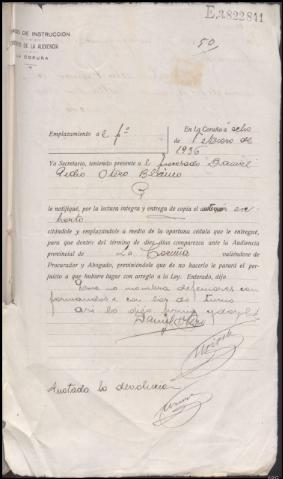 E.3822841
DE INSTRUCCION
DE LA AUDIENCIA
CORUÑA
50
Emplazamiento a
En La Coruña á ocho
de Enero de
1936
Yo Secretario, teniendo presente a procesado Daniel
Pedro Otero Blanco
le notifiqué, por la lectura íntegra y entrega de copia el en
citándole y emplazándole a medio de la oportuna cédula que le entregué,
para que dentro del término de diez días comparezca ante la Audiencia
provincial de La Coruña valiéndose
de Procurador y Abogado, previniéndole que de no hacerlo le parará el per-
juicio a que hubiere lugar con arreglo a la Ley. Enterado, dijo
no nombra defensores con
formandose con los de turno
Así lo dijo firma y doy fe
Daniel Otero
Anotada la devolución